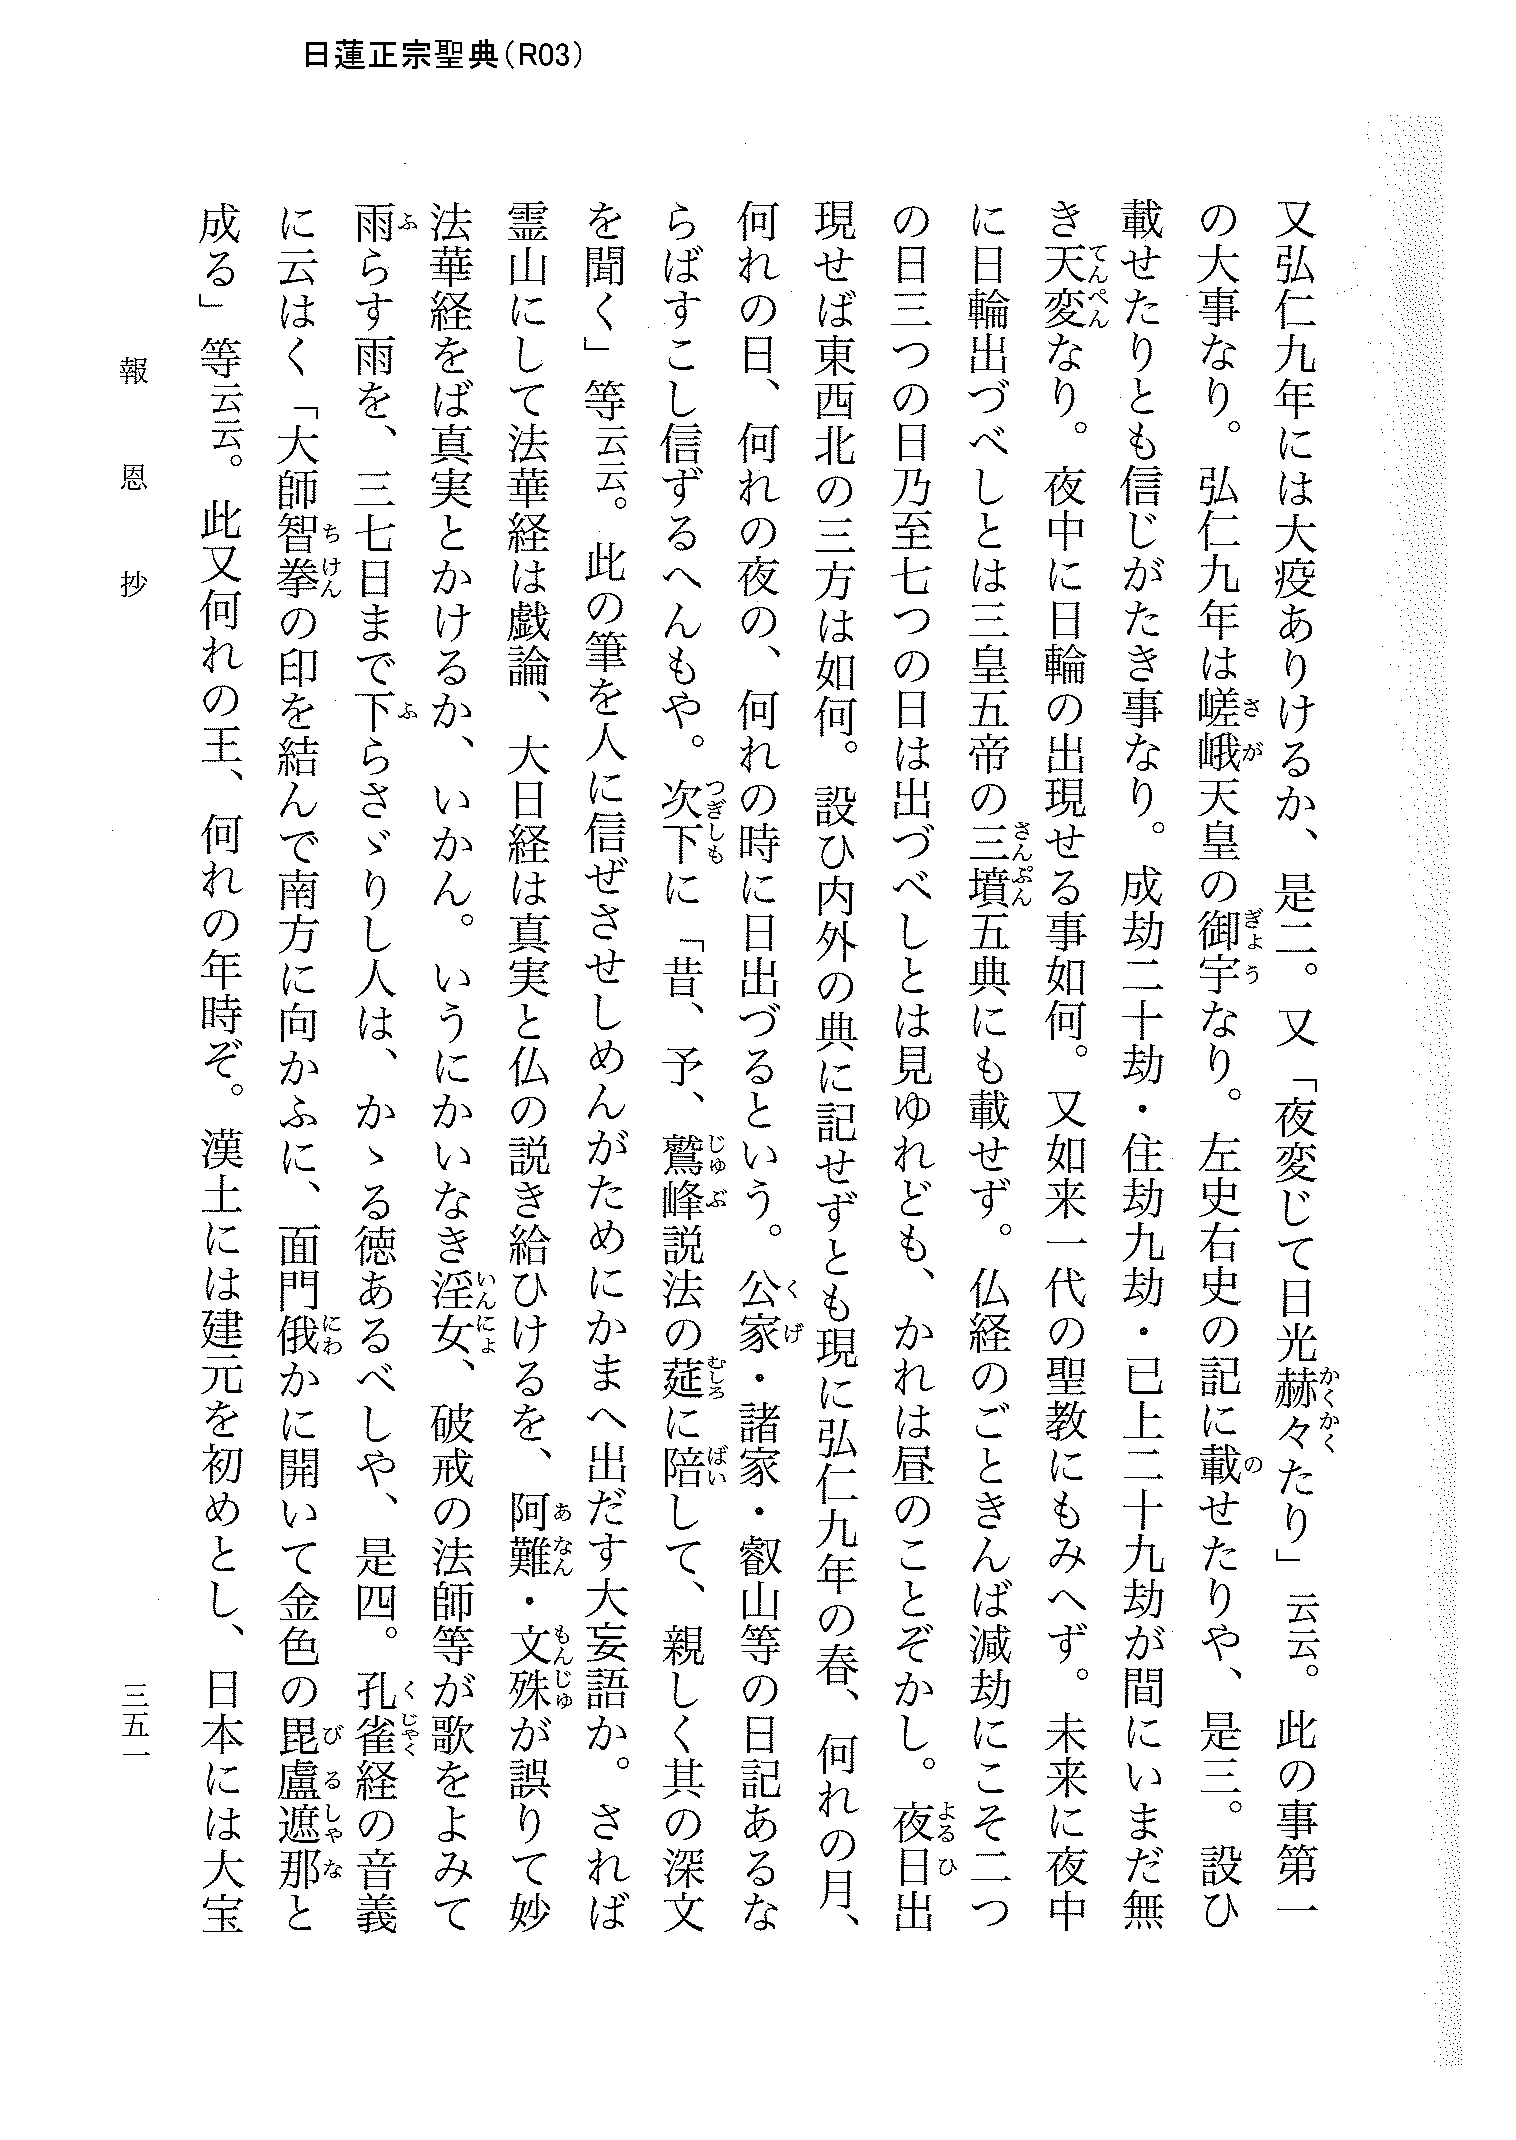 日蓮正宗聖典（R03）
又弘仁九年には大疫ありけるか、是二。又「夜変じて日光赫々たり」云云。此の事第一
の大事なり。弘仁九年は嵯峨天皇の御宇なり。左史右史の記に載せたりや、是三。設ひ
載せたりとも信じがたき事なり。成劫二十劫・住劫九劫・已上二十九劫が間にいまだ無
き天変なり。夜中に日輪の出現せる事如何。又如来一代の聖教にもみへず。未来に夜中
に日輪出づべしとは三皇五帝の三墳五典にも載せず。仏経のごときんば減劫にこそ二つ
の日三つの日乃至七つの日は出づべしとは見ゆれども、かれは昼のことぞかし。夜日出
現せば東西北の三方は如何。設ひ内外の典に記せずとも現に弘仁九年の春、何れの月、
何れの日、何れの夜の、何れの時に日出づるという。公家・諸家・叡山等の日記あるな
らばすこし信ずるへんもや。次下に「昔、予、鷲峰説法の莚に陪して、親しく其の深文
を聞く」等云云。此の筆を人に信ぜさせしめんがためにかまへ出だす大妄語か。されば
霊山にして法華経は戯論、大日経は真実と仏の説き給ひけるを、阿難・文殊が誤りて妙
法華経をば真実とかけるか、いかん。いうにかいなき淫女、破戒の法師等が歌をよみて
雨らす雨を、三七日まで下らさゞりし人は、かゝる徳あるべしや、是四。孔雀経の音義
に云はく「大師智拳の印を結んで南方に向かふに、面門俄かに開いて金色の毘盧遮那と
成る」等云云。此又何れの王、何れの年時ぞ。漢土には建元を初めとし、日本には大宝
報恩抄
三五一